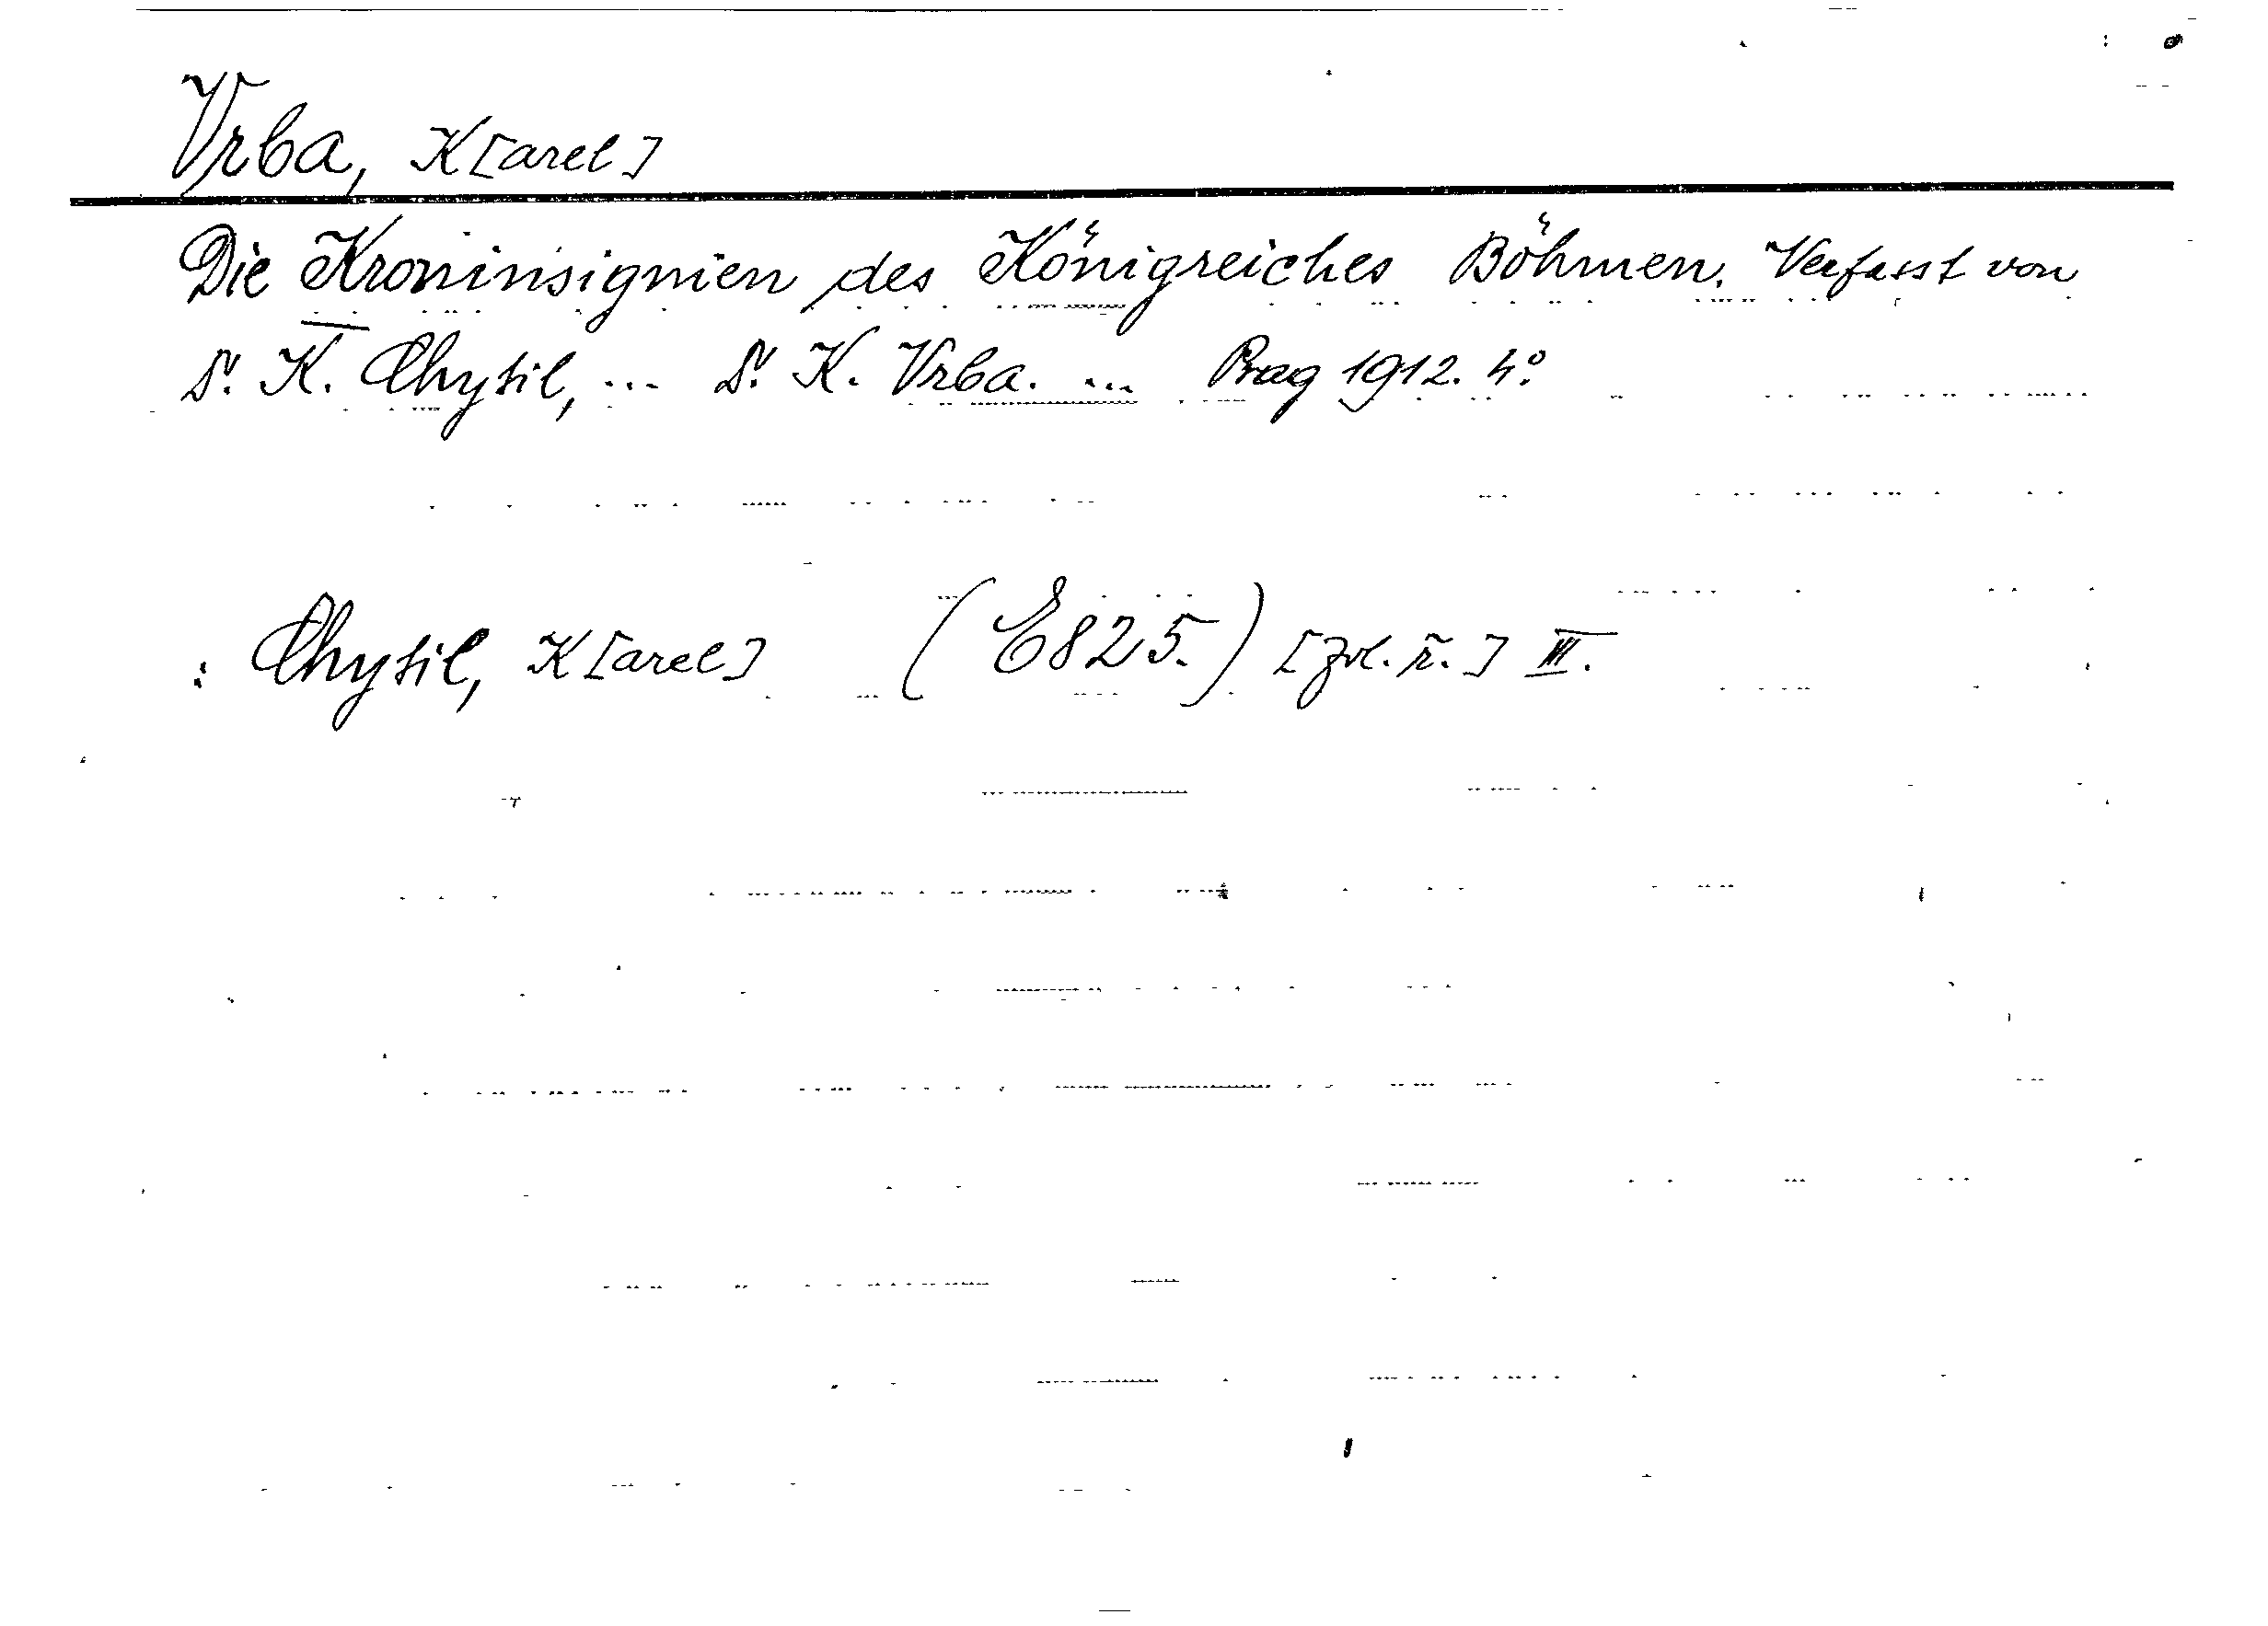 Vrba, K[arel]
Die Kroninsignien des Königreiches Böhmen. Verfasst von
Dr. K. Chytil, ... Dr. K. Vrba. ... Prag 1912. 4°.
: Chytil, K[arel] (E825.) [zvl. ř.] III.